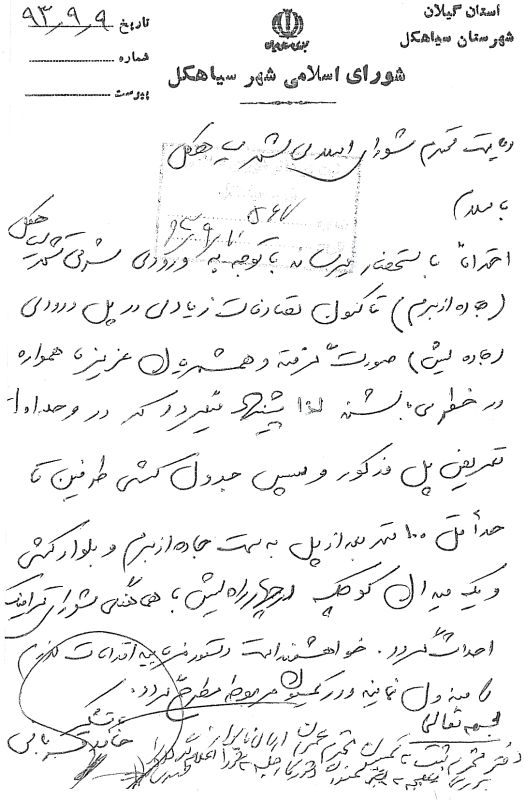 استان گیلان
شهرستان سیاهکل
جمهوری اسلامی ایران
شورای اسلامی شهر سیاهکل
تاریخ ۹۳،۹،۹
شماره
پیوست
ریاست محترم شورای اسلامی شهر سیاهکل
۵۶۷
۹۳،۹،۱۰
با سلام
احتراماً باستحضار میرساند با توجه به ورودی شرقی شهر سیاهکل
(جاده ازبرم) تاکنون تصادفات زیادی در پل ورودی
(جاده لیش) صورت گرفته و همشهریان عزیز ما همواره
در خطر می باشند لذا پیشنهاد میگردد که در
تعریض پل مذکور و سپس جدول کشی طرفین تا
حداقل ۱۰۰ متر بعد از پل به سمت جاده ازبرم و بلوار کشی
و یک میدان کوچک در چهارراه لیش با هماهنگی شورای ترافیک
احداث گردد. خواهشمند است دستور فرمایید اقدامات لازم
مبذول نمایند و در کمیسیون مربوطه مطرح گردد.
با تشکر
بسمه تعالی
دفتر محترم ثبت تا کمیسیون محترم عمران